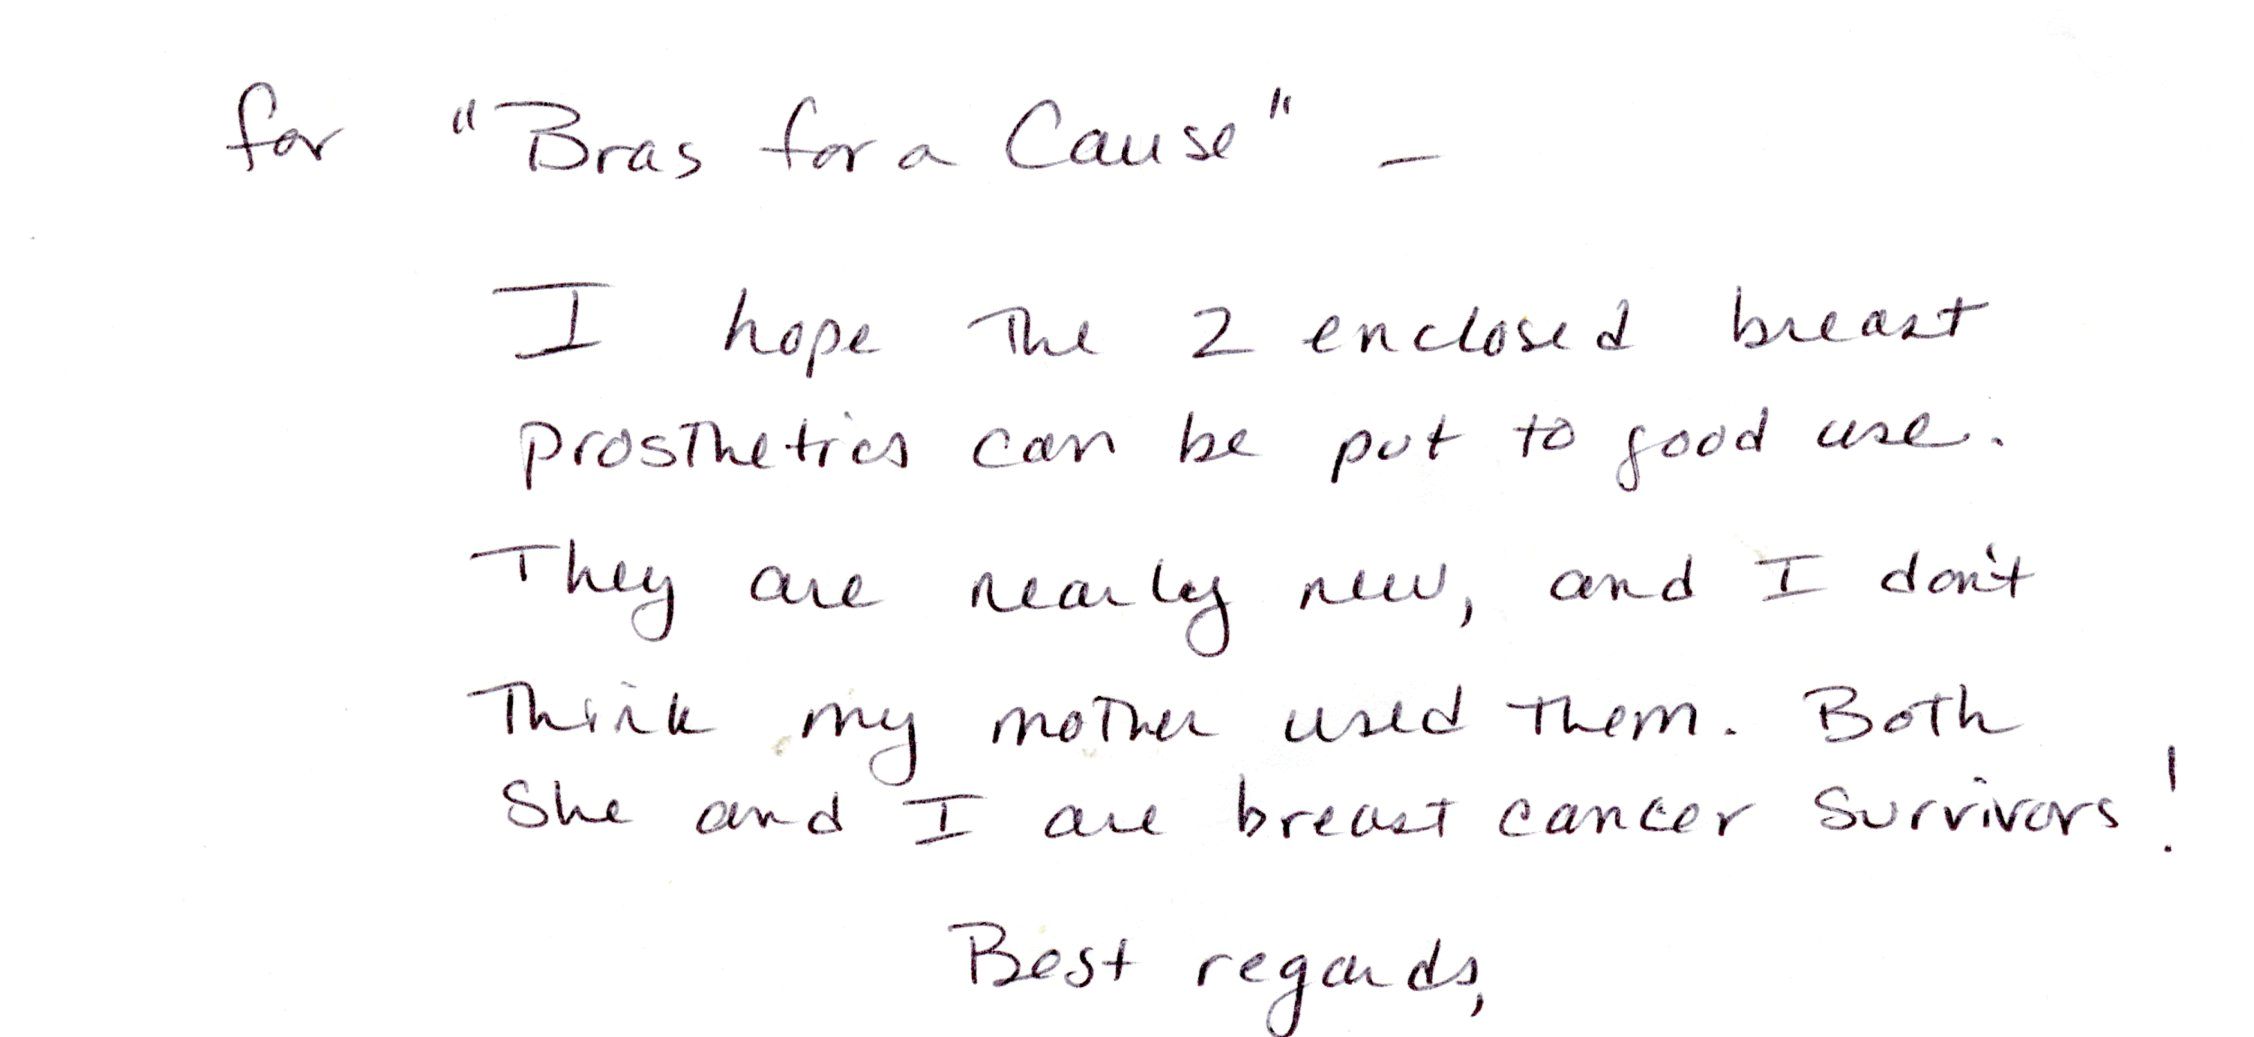 for "Bras for a Cause" –
I hope the 2 enclosed breast
prosthetics can be put to good use.
They are nearly new, and I don't
think my mother used them. Both
she and I are breast cancer survivors!
Best regards,